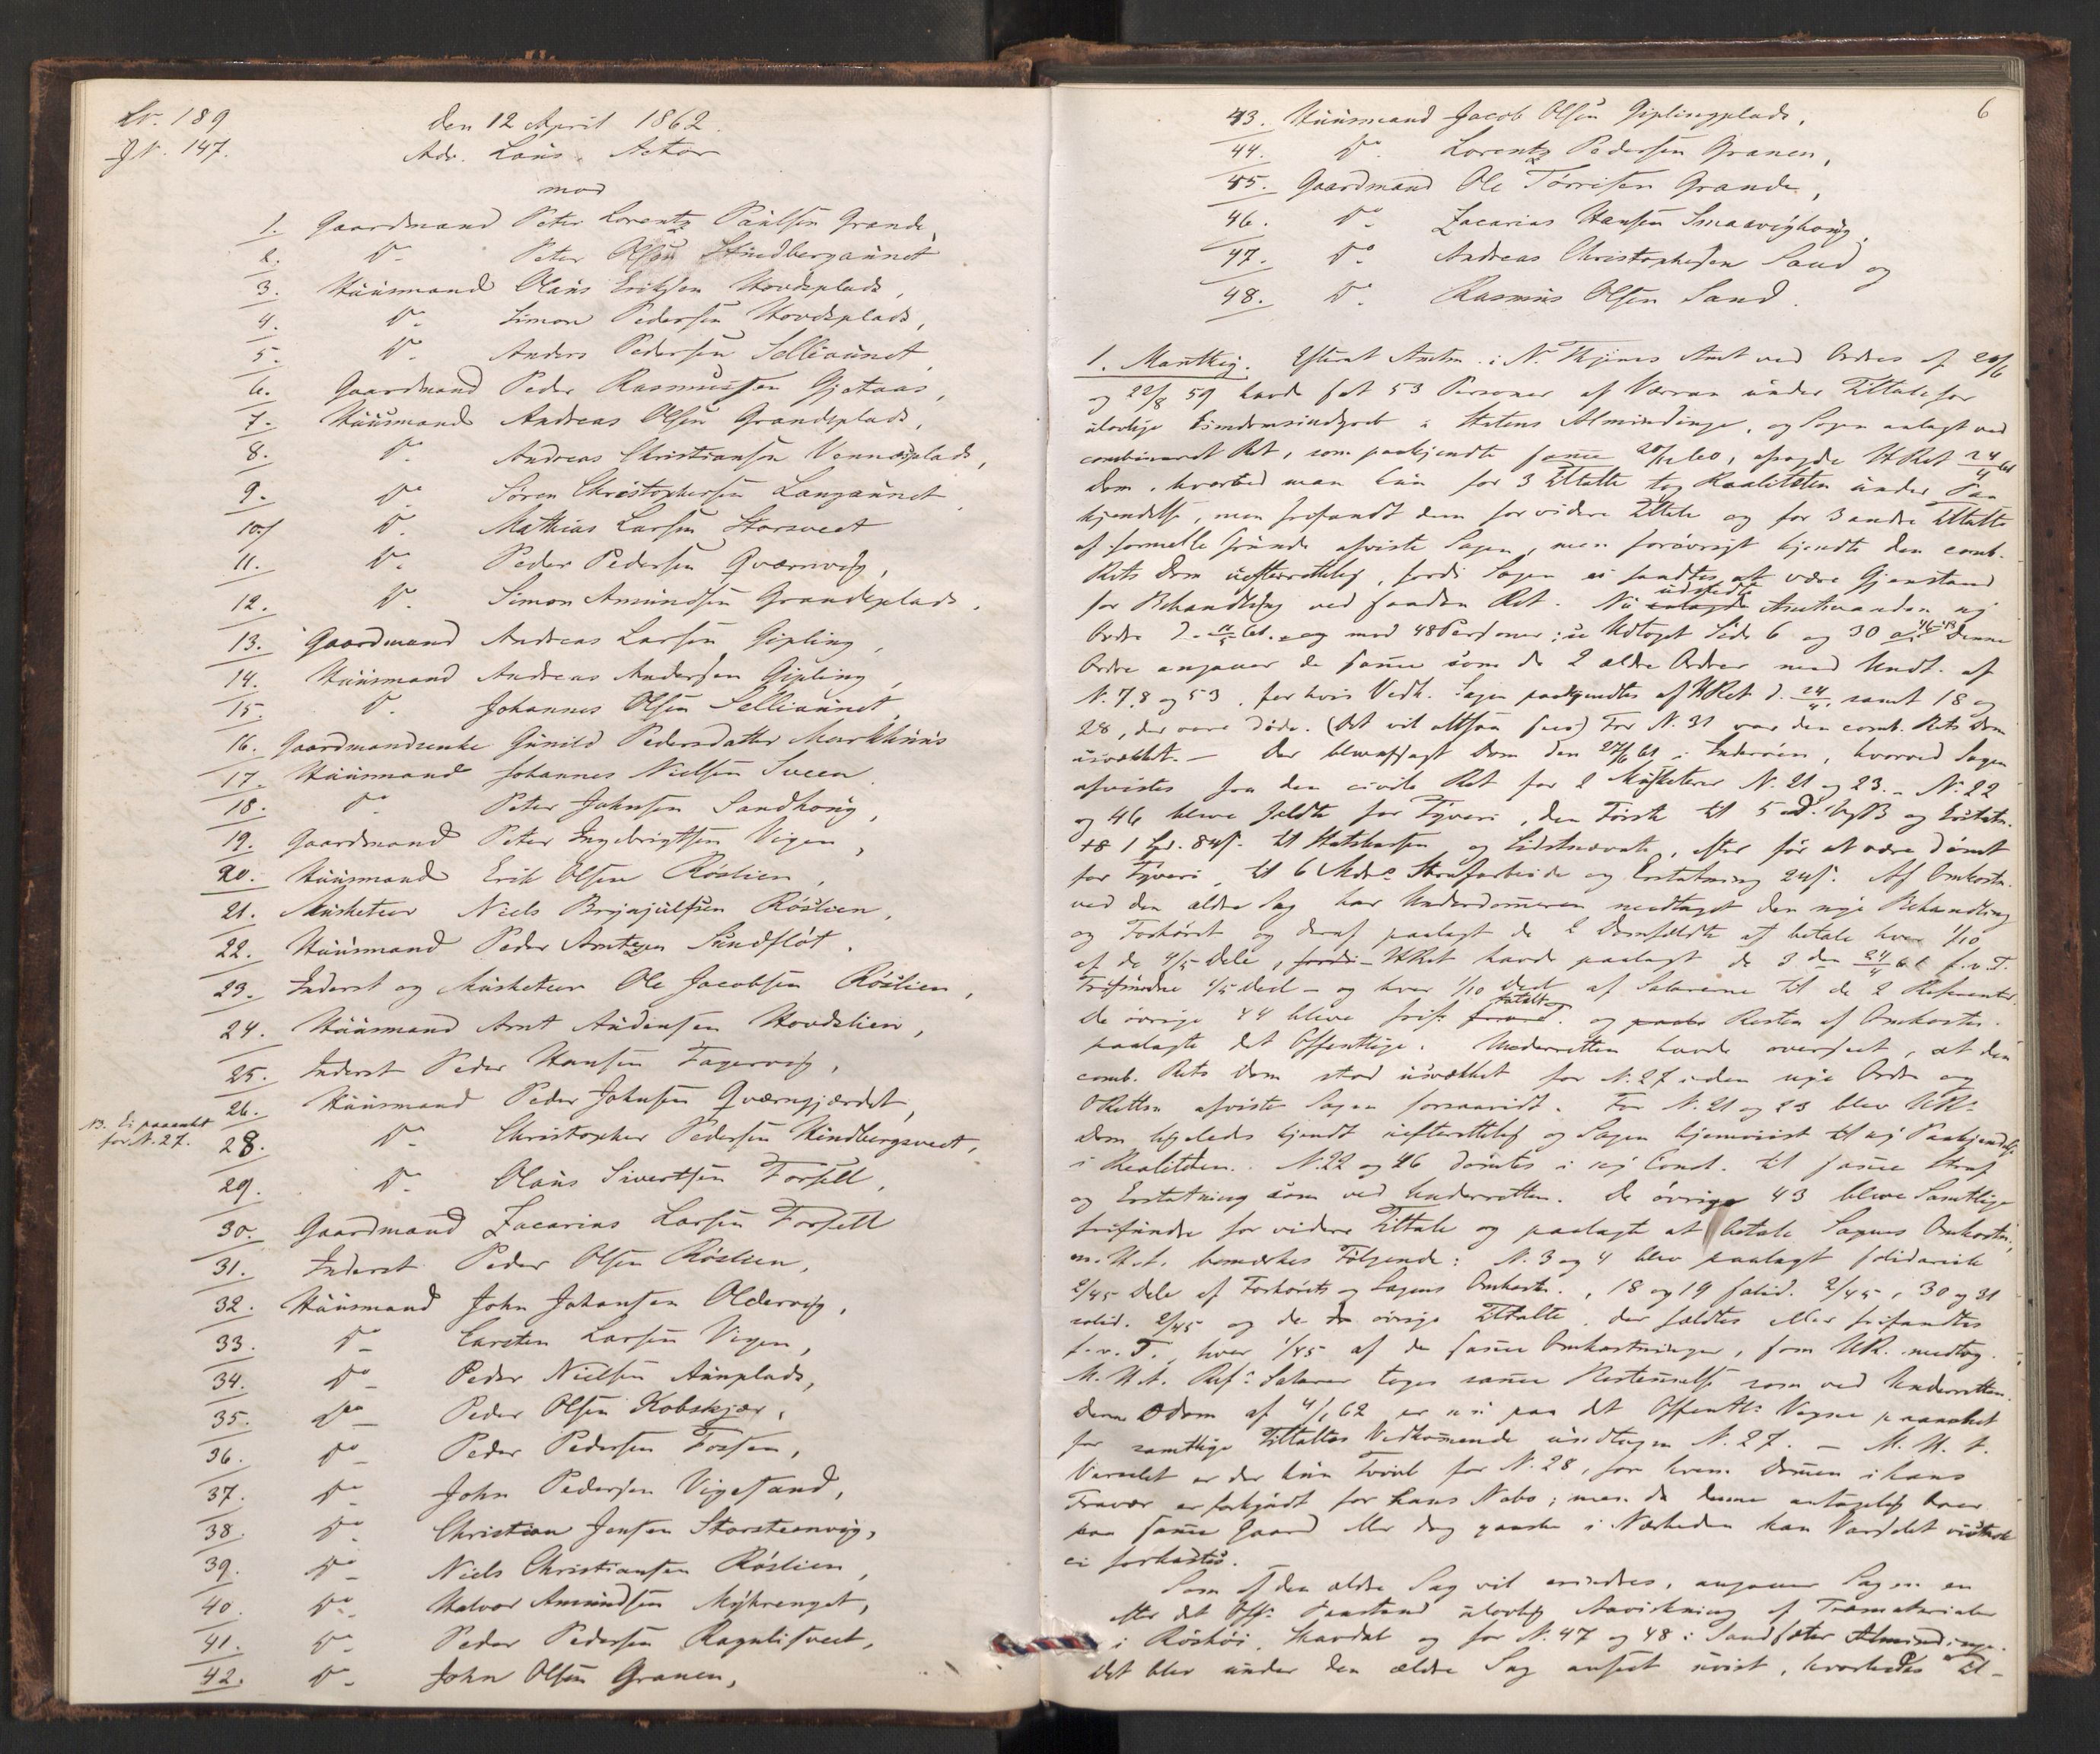 Lr. 189
J N. 147.
den 12 April 1862.
Adv. Laus. Actor
mod
1. Gaardmand Peter Lorentz Paulsen Grande,
2. Do Peter Olsen Strindbergaunet
3. Huusmand Olaus Eriksen Hovdsplads,
4. Do Simon Pedersen Hovdsplads,
5. Do Anders Pedersen Selliaunet,
6. Gaardmand Peder Rasmussen Gjetaas,
7. Huusmand Andreas Olsen Grandeplads,
8. Do Andreas Christiansen Vennesplads,
9. Do Søren Christophersen Langaunet,
10. Do Mathias Larsen Storsveet
11. Do Peder Pedersen Qvernvig,
12. Do Simon Amundsen Grandeplads,
13. Gaardmand Andreas Larsen Gipling,
14. Huusmand Andreas Andersen Gipling,
15. Do Johannes Olsen Selliaunet,
16. Gaardmandsenke Gunild Pedersdatter Markhuus
17. Huusmand Johannes Nielsen Sveen,
18. Do Peter Johnsen Sandhoug,
19. Gaardmand Peter Ingebrigtsen Vigen,
20. Huusmand Erik Olsen Röslien,
21. Musketeer Niels Brynjulfsen Röslien,
22. Huusmand Peder Arntzen Sundslöt,
23. Inderst og Musketeer Ole Jacobsen Röslien,
24. Huusmand Arnt Audensen Hovdslien,
25. Inderst Peder Hansen Fagervig,
26. Huusmand Peder Johnsen Qverngjerdet,
NB. Ei paaanket
for N. 27.
28. Do Christopher Pedersen Hindbergsveet,
29. Do Olaus Sivertsen Forsell,
30. Gaardmand Zacarias Larsen Forsell
31. Inderst Peder Olsen Röslien,
32. Huusmand John Johansen Oldervig,
33. Do Carsten Larsen Vigen,
34. Do Peder Nielsen Aunplads,
35. Do Peder Olsen Kobskjær,
36. Do Peder Pedersen Fossen,
37. Do John Pedersen Vigesand,
38. Do Christian Jensen Storsteenvig,
39. Do Niels Christiansen Röslien,
40. Do Halvor Amundsen Myhrenget,
41. Do Peder Pedersen Ragulisveet,
42. Do John Olsen Granen,
6
43. Huusmand Jacob Olsen Giplingplads,
44. Do Lorentz Pedersen Granen,
45. Gaardmand Ole Tørrisen Grande,
46. Do Zacarias Hansen Smaavighoug,
47. Do Andreas Christophersen Sand og
48. Do Rasmus Olsen Sand.
1. Mærkig. Efterat Amtm. i N. Thjems Amt ved Ordres af 20/6
og 22/8 59 havde sat 53 Personer af Værran under Tiltale for
ulovlige Eiendomsindgreb i Statens Alminding, og Sagen anlagt ved
combineret Ret, som paakjendte samme 20/12 60, afsagde HRet 24/4 61
Dom, hvorved man kun for 3 Tiltalte tog Realiteten under Paa-
kjendelse, men frifandt dem for videre Tiltale og for 3 andre Tiltalte
af formelle Grunde afviste Sagen, men forøvrigt kjendte den comb.
Rets Dom uefterrettelig, fordi Sagen ei fandtes at være Gjenstand
for Behandling ved saadan Ret. Nu udstedte Amtmanden ny
Ordre mod 48 Personer: Udtoget Side 6 og 30 denne
Ordre angaaer de samme som de 2 ældre Ordrer med Undt. af
N. 7, 8 og 53, for hvis Vedk. Sagen paakjendtes af HRet d. 24/4, samt 18 og
28, der vare døde. For N. 31 var den comb. Rets Dom
usvækket. - Der blev afsagt Dom den 27/6 61 i Inderøen, hvorved Sagen
afvistes fra den civile Ret for 2 Musketerer N. 21 og 23. - N. 22
og 46 bleve fældte for Tyveri, den Første til 5 og Erstatn.
til Statskassen og Sidstnævnte, efter før at være dømt
for Tyveri, til 6 Mdrs Strafarbeide og Erstatning 24 s. Af Omkostn.
ved den ældre Sag har Underdommeren medtaget den nye Behandling
og Forhøret og deraf paalagt de 2 Domfældte at betale hver 1/10
af de 4/5 Dele, HRet havde paalagt de 3 den 24/4 61 f.v.T.
Frifundne 1/5 Deel - og hver 1/10 Deel af Salarerne til de 2 Referenter.
De øvrige 44 bleve frif. og Resten af Omkostn.
paalagte det Offentlige. Underretten havde overseet, at den
comb. Rets Dom stod usvækket for N. 27 i den nye Ordre og
ORetten afviste Sagen forsaavidt. For N. 21 og 23 blev URs
Dom ligeledes kjendt uefterrettelig og Sagen hjemviist til ny Paakjendelse
i Realiteten. N. 22 og 46 dømtes i Concl. til samme Straf
og Erstatning som ved Underretten. De øvrige 43 bleve samtlige
frifundne for videre Tiltale og paalagte at betale Sagens Omkostn.,
m.H.t. bemærkes Følgende: N. 3 og 4 blev paalagt solidarisk
2/45 Dele af Forhørets og Sagens Omkostn., 18 og 19 solid. 2/45, 30 og 31
solid. 2/45 og de øvrige Tiltalte, der fældtes eller frifandtes
f.v.T., hver 1/45 af de samme Omkostninger, som UR. medtog.
M.H.t. Refs Salarer toges samme Bestemmelse som ved Underretten.
Denne Odom af 4/1 62 er nu paa det Offentl. Vegne paaanket
for samtlige Tiltaltes Vedkommende undtagen N. 27. - M.H.t.
Varselet er der kun Tvivl for N. 28, for hvem Dommen i hans
Fravær er forkyndt for hans Nabo; men da denne antagelig boer
paa samme Gaard eller dog ganske i Nærheden kan Varselet vistnok
ei forkastes.
Som af den ældre Sag vil erindres, angaaer Sagen en
efter det Offs Paastand ulovlig Aavirkning af Træmaterialer
i Röshöi, Skavdal og for N. 47 og 48 i Sandsæter Alminding.
Det blev under den ældre Sag anseet uvist, hvorledes Til-